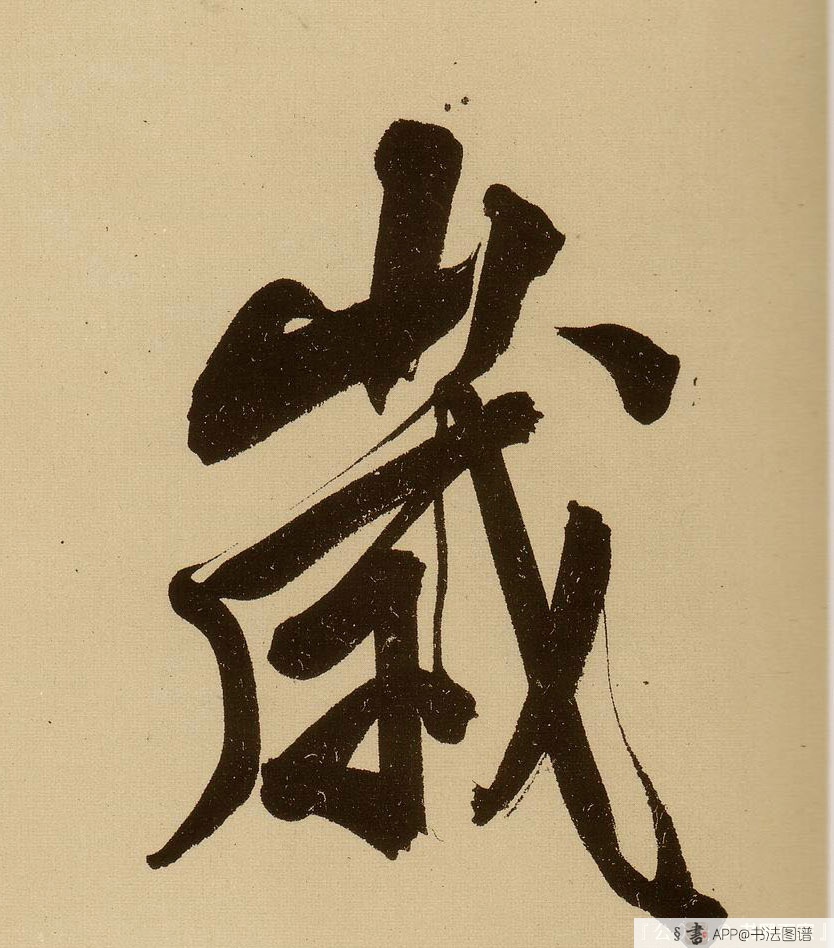 歲
§書 APP@书法图谱